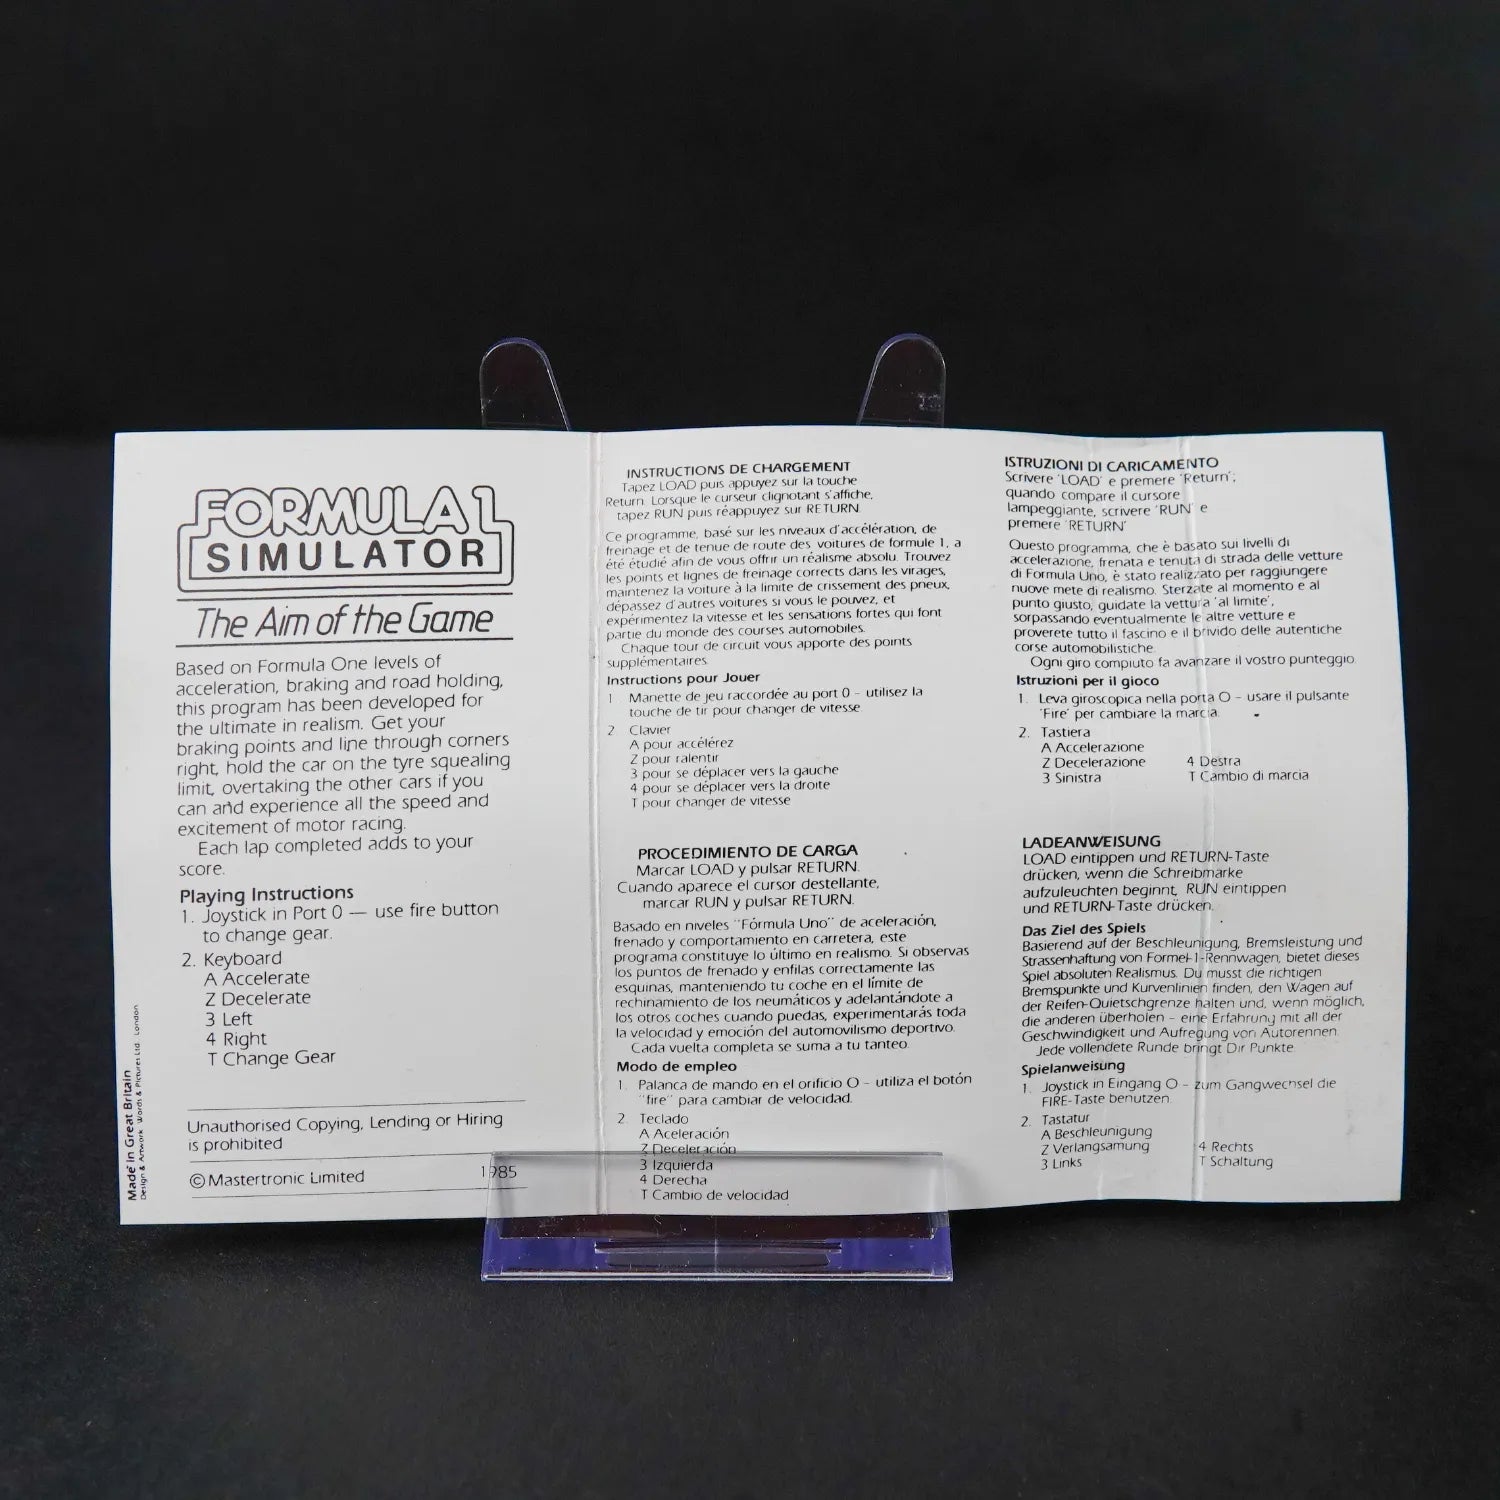 FORMULA 1
SIMULATOR
The Aim of the Game
Based on Formula One levels of
acceleration, braking and road holding,
this program has been developed for
the ultimate in realism. Get your
braking points and line through corners
right, hold the car on the tyre squealing
limit, overtaking the other cars if you
can and experience all the speed and
excitement of motor racing.
Each lap completed adds to your
score.
Playing Instructions
1. Joystick in Port 0 — use fire button
to change gear.
2. Keyboard
A Accelerate
Z Decelerate
3 Left
4 Right
T Change Gear
Unauthorised Copying, Lending or Hiring
is prohibited
© Mastertronic Limited 1985
Made in Great Britain
Design & Artwork Words & Pictures Ltd. London
INSTRUCTIONS DE CHARGEMENT
Tapez LOAD puis appuyez sur la touche
Return. Lorsque le curseur clignotant s'affiche,
tapez RUN puis réappuyez sur RETURN.
Ce programme, basé sur les niveaux d'accélération, de
freinage et de tenue de route des voitures de formule 1, a
été étudié afin de vous offrir un réalisme absolu. Trouvez
les points et lignes de freinage corrects dans les virages,
maintenez la voiture à la limite de crissement des pneux,
dépassez d'autres voitures si vous le pouvez, et
expérimentez la vitesse et les sensations fortes qui font
partie du monde des courses automobiles.
Chaque tour de circuit vous apporte des points
supplémentaires.
Instructions pour Jouer
1 Manette de jeu raccordée au port 0 – utilisez la
touche de tir pour changer de vitesse.
2. Clavier
A pour accélérez
Z pour ralentir
3 pour se déplacer vers la gauche
4 pour se déplacer vers la droite
T pour changer de vitesse
PROCEDIMIENTO DE CARGA
Marcar LOAD y pulsar RETURN.
Cuando aparece el cursor destellante,
marcar RUN y pulsar RETURN.
Basado en niveles "Fórmula Uno" de aceleración,
frenado y comportamiento en carretera, este
programa constituye lo último en realismo. Si observas
los puntos de frenado y enfilas correctamente las
esquinas, manteniendo tu coche en el límite de
rechinamiento de los neumáticos y adelantándote a
los otros coches cuando puedas, experimentarás toda
la velocidad y emoción del automovilismo deportivo.
Cada vuelta completa se suma a tu tanteo.
Modo de empleo
1. Palanca de mando en el orificio O – utiliza el botón
"fire" para cambiar de velocidad.
2. Teclado
A Aceleración
Z Deceleración
3 Izquierda
4 Derecha
T Cambio de velocidad
ISTRUZIONI DI CARICAMENTO
Scrivere 'LOAD' e premere 'Return';
quando compare il cursore
lampeggiante, scrivere 'RUN' e
premere 'RETURN'
Questo programma, che è basato sui livelli di
accelerazione, frenata e tenuta di strada delle vetture
di Formula Uno, è stato realizzato per raggiungere
nuove mete di realismo. Sterzate al momento e al
punto giusto, guidate la vettura 'al limite',
sorpassando eventualmente le altre vetture e
proverete tutto il fascino e il brivido delle autentiche
corse automobilistiche.
Ogni giro compiuto fa avanzare il vostro punteggio.
Istruzioni per il gioco
1. Leva giroscopica nella porta O – usare il pulsante
'Fire' per cambiare la marcia.
2. Tastiera
A Accelerazione
Z Decelerazione 4 Destra
3 Sinistra T Cambio di marcia
LADEANWEISUNG
LOAD eintippen und RETURN-Taste
drücken, wenn die Schreibmarke
aufzuleuchten beginnt, RUN eintippen
und RETURN-Taste drücken.
Das Ziel des Spiels
Basierend auf der Beschleunigung, Bremsleistung und
Strassenhaftung von Formel-1-Rennwagen, bietet dieses
Spiel absoluten Realismus. Du musst die richtigen
Bremspunkte und Kurvenlinien finden, den Wagen auf
der Reifen-Quietschgrenze halten und, wenn möglich,
die anderen überholen – eine Erfahrung mit all der
Geschwindigkeit und Aufregung von Autorennen.
Jede vollendete Runde bringt Dir Punkte.
Spielanweisung
1. Joystick in Eingang O – zum Gangwechsel die
FIRE-Taste benutzen.
2. Tastatur
A Beschleunigung
Z Verlangsamung 4 Rechts
3 Links T Schaltung